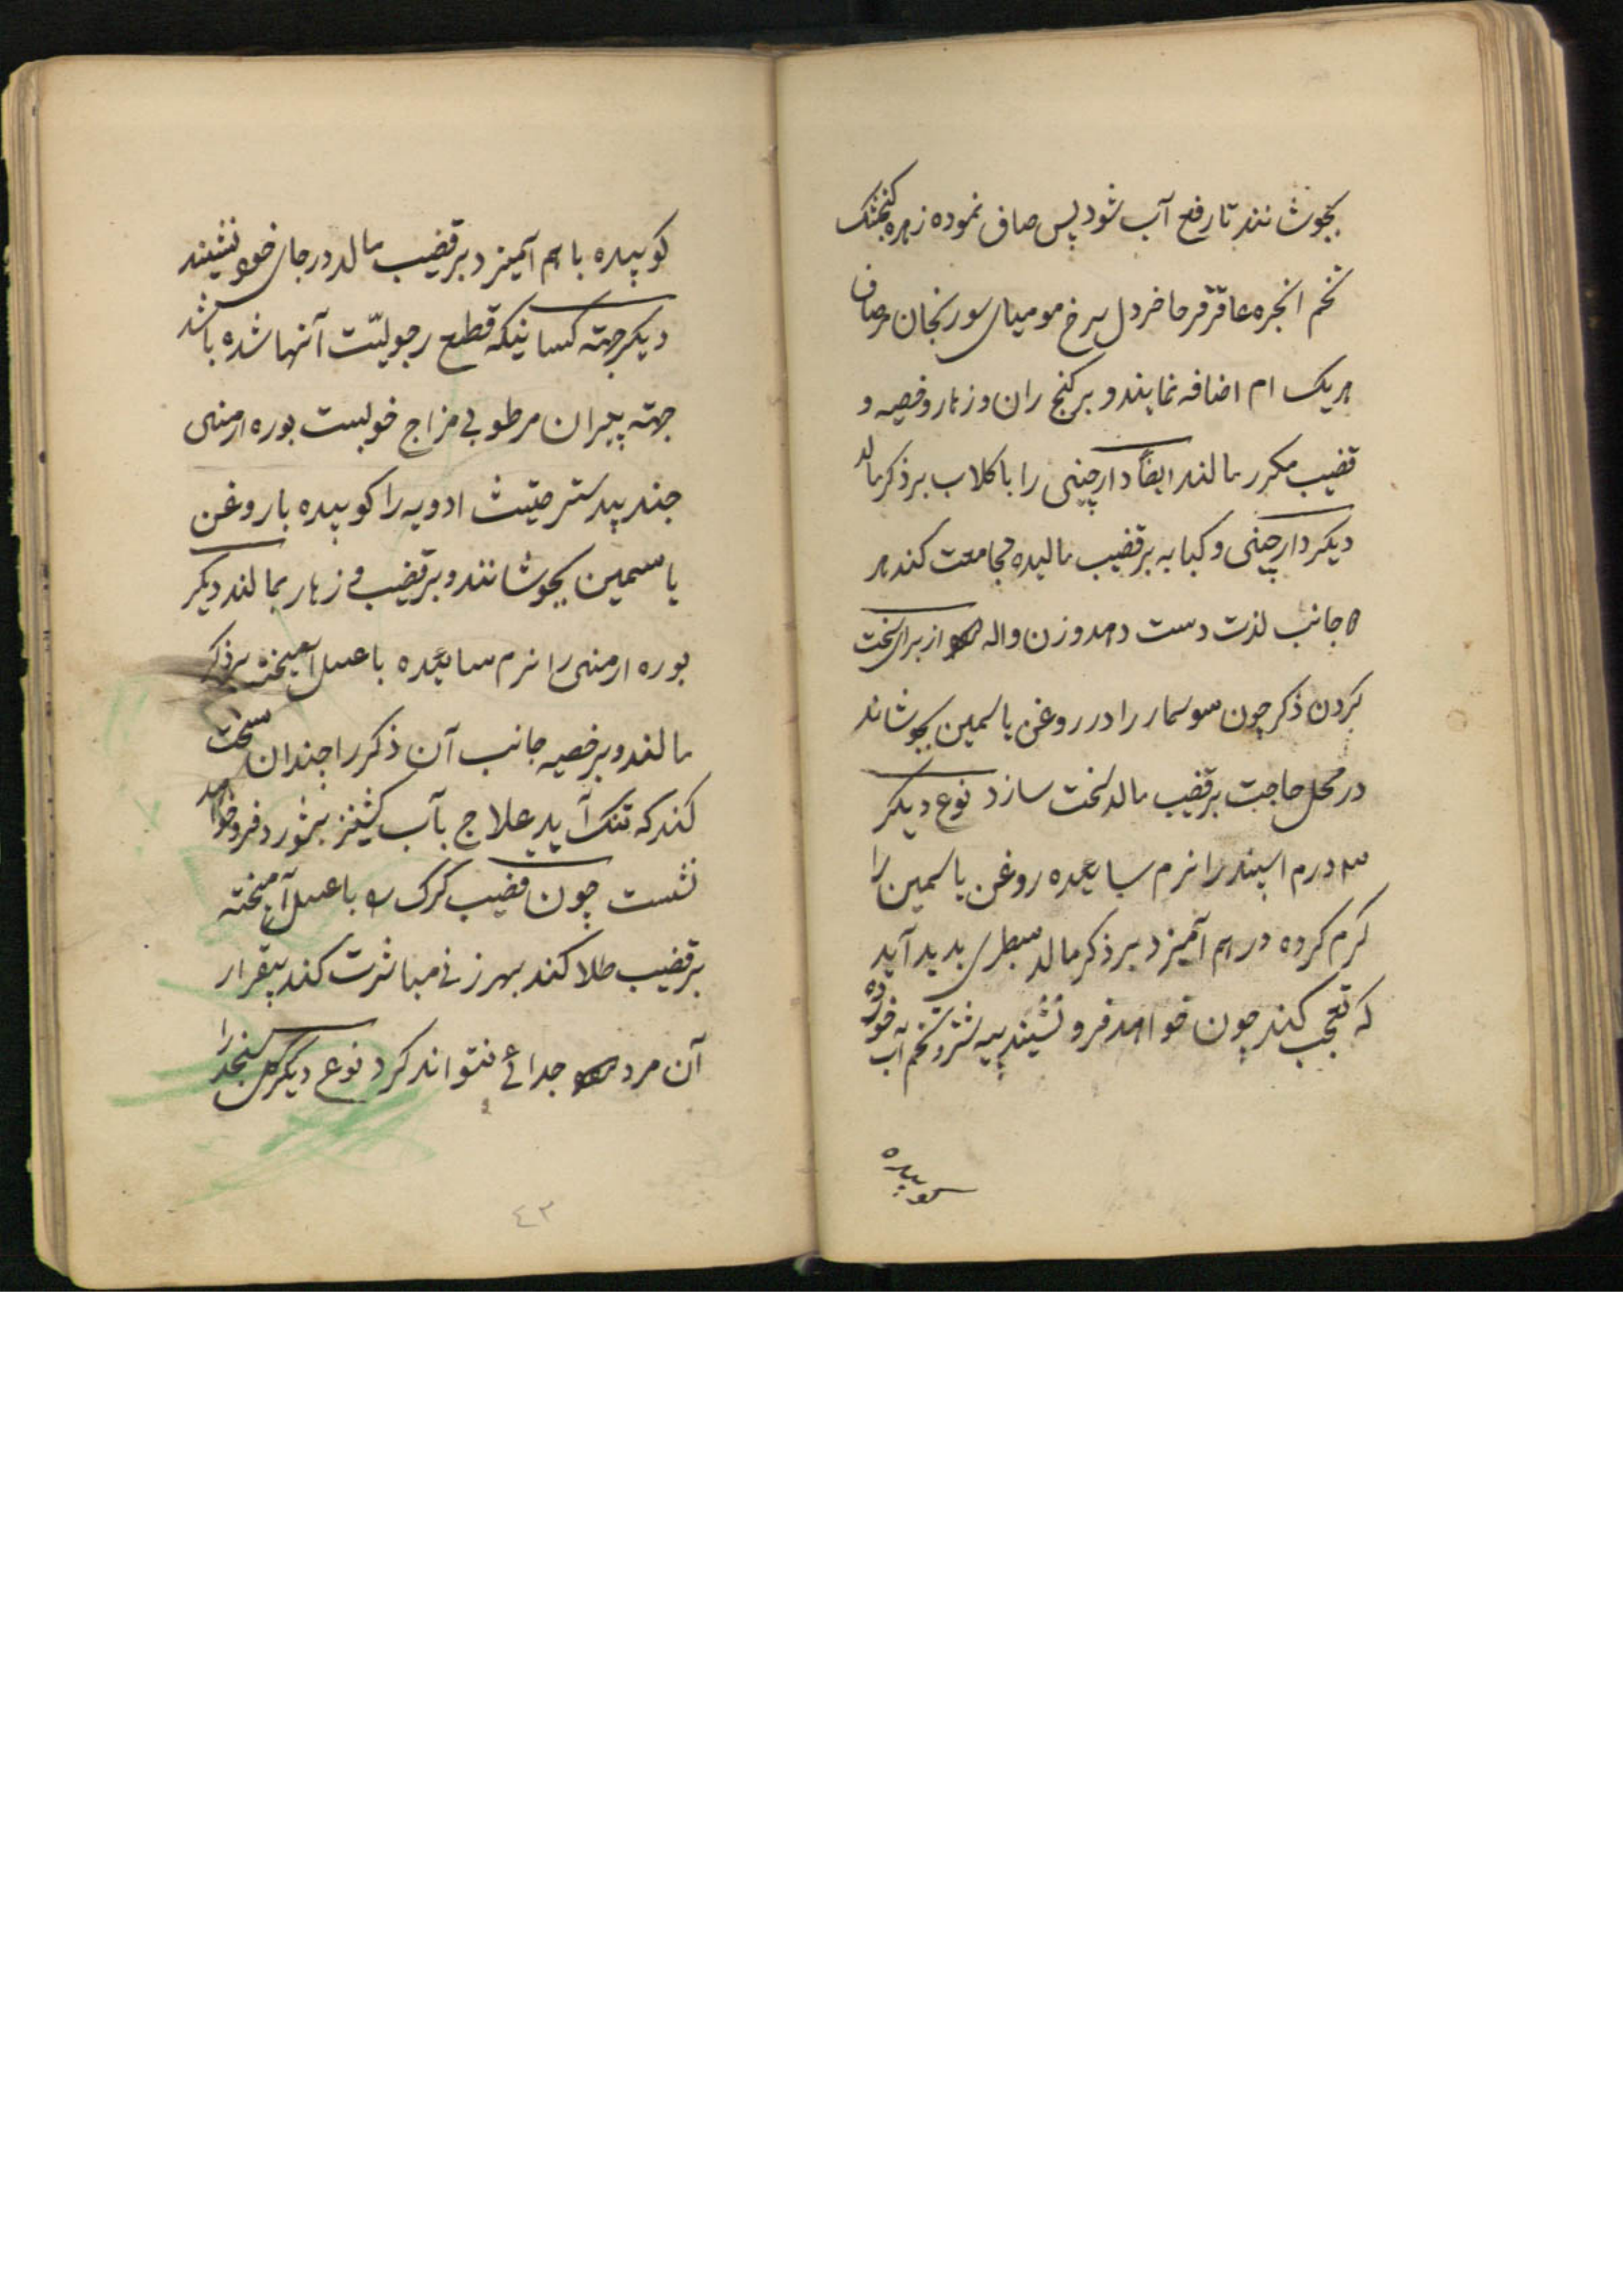 بجوشانند تا رفع آب شود پس صاف نموده زهره کنجشک
تخم انجره عاقرقرحا خردل سرخ مومیای سورنجان
هریک ام اضافه نمایند و بر کنج ران و زهار و خصیه و
قضیب مکرر مالند ایضاً دارچینی را با کلاب بر ذکر مالد
دیکر دارچینی و کبابه بر قضیب مالیده مجامعت کند هر
جانب لذت دست دهد و زن واله از برای سخت
کردن ذکر چون سوسمار را در روغن یاسمین بجوشاند
در محل حاجت بر قضیب مالد سخت سازد نوع دیکر
درم اسپند را نرم ساییده روغن یاسمین را
کرم کرده در هم آمیزد بر ذکر مالد سطبری پدید آید
که تعجب کند چون خواهد فرو نشیند پیه شتر و تخم
کوبیده
کوبیده با هم آمیزد بر قضیب مالد در جای خود نشیند
دیکر جهته کسانیکه قطع رجولیّت آنها شده باشد
جهته پیران مرطوبی مزاج خوبست بوره ارمنی
جند بیدستر ادویه را کوبیده با روغن
یاسمین بجوشانند و بر قضیب و زهار بمالند دیکر
بوره ارمنی را نرم ساییده با عسل آمیخته بر ذکر
مالند و بر خصیه جانب آن ذکر را چندان سخت
کند که تنک آید علاج بآب کشنیز بشورد فرو خواهد
نشست چون قضیب کرک با عسل آمیخته
بر قضیب طلا کند بهر زنی مباشرت کند بیقرار
آن مرد جدائی نتواند کرد نوع دیکر
٤٣